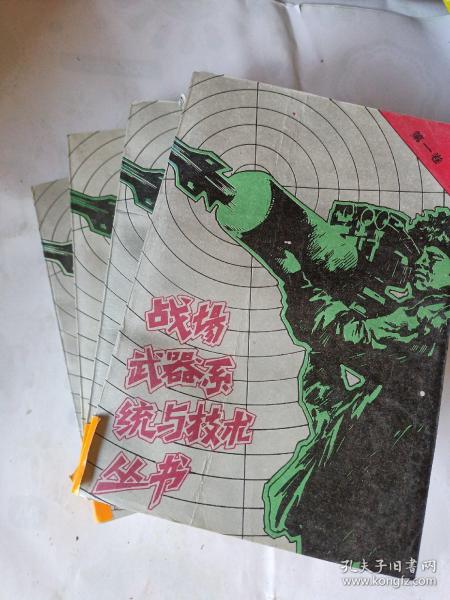 第一卷
战场
武器系
统与技术
丛书
孔夫子旧书网
www.kongfz.com